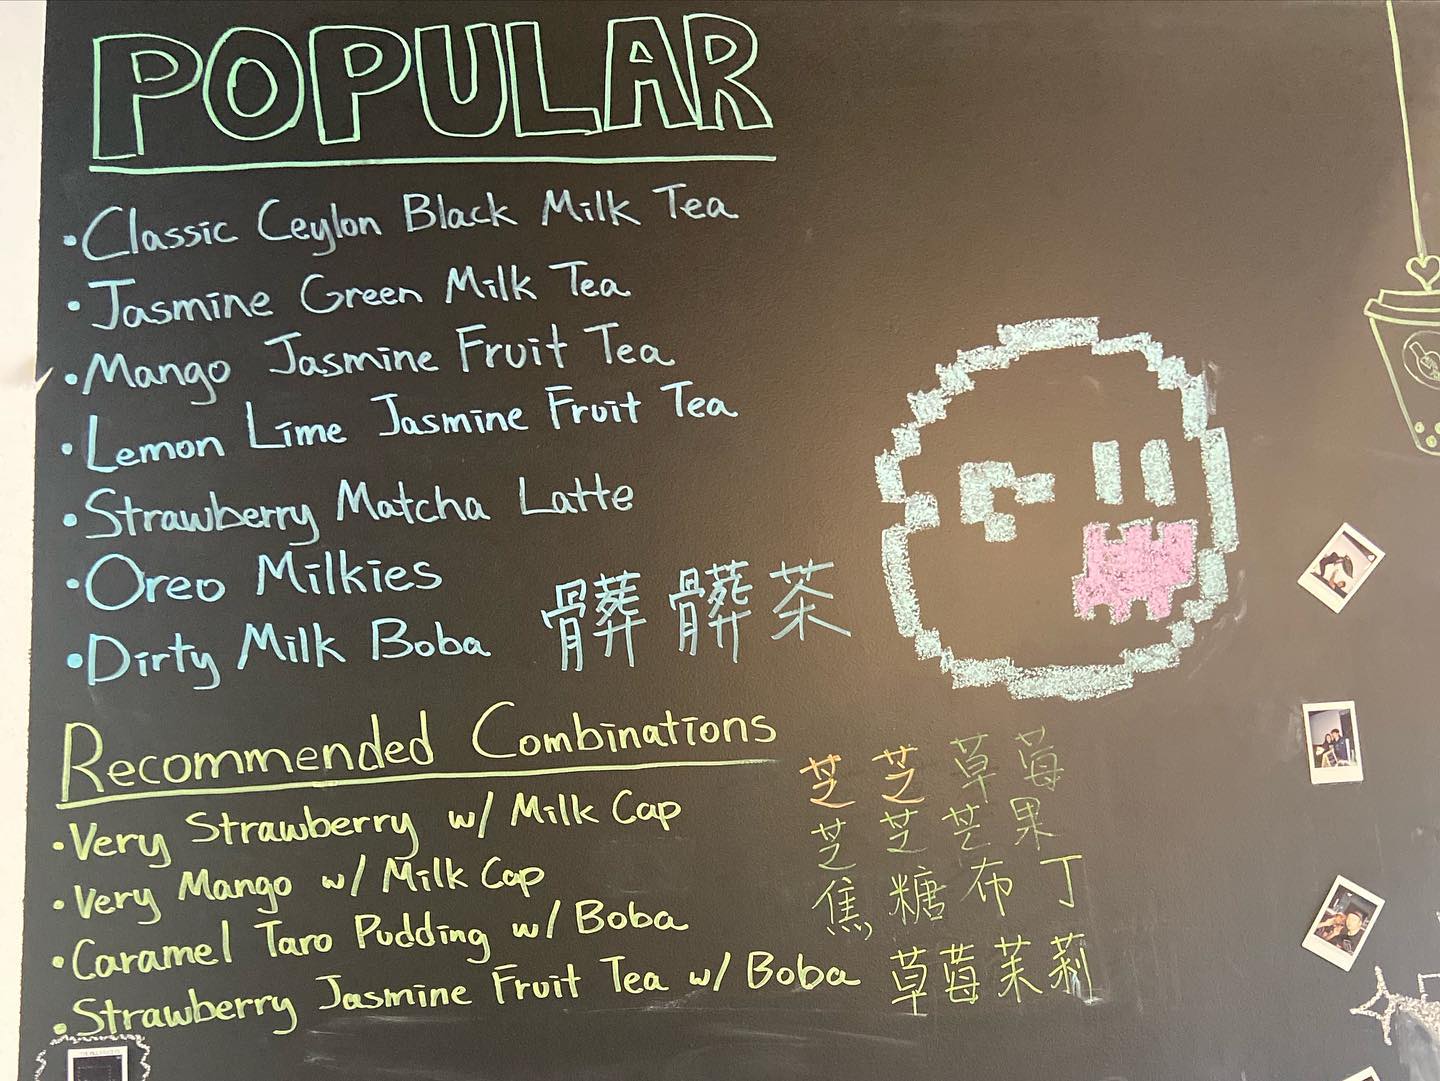 POPULAR
• Classic Ceylon Black Milk Tea
• Jasmine Green Milk Tea
• Mango Jasmine Fruit Tea
• Lemon Lime Jasmine Fruit Tea
• Strawberry Matcha Latte
• Oreo Milkies
• Dirty Milk Boba 髒髒茶
Recommended Combinations
• Very Strawberry w/ Milk Cap 芝芝草莓
• Very Mango w/ Milk Cap 芝芝芒果
• Caramel Taro Pudding w/ Boba 焦糖布丁
• Strawberry Jasmine Fruit Tea w/ Boba 草莓茉莉